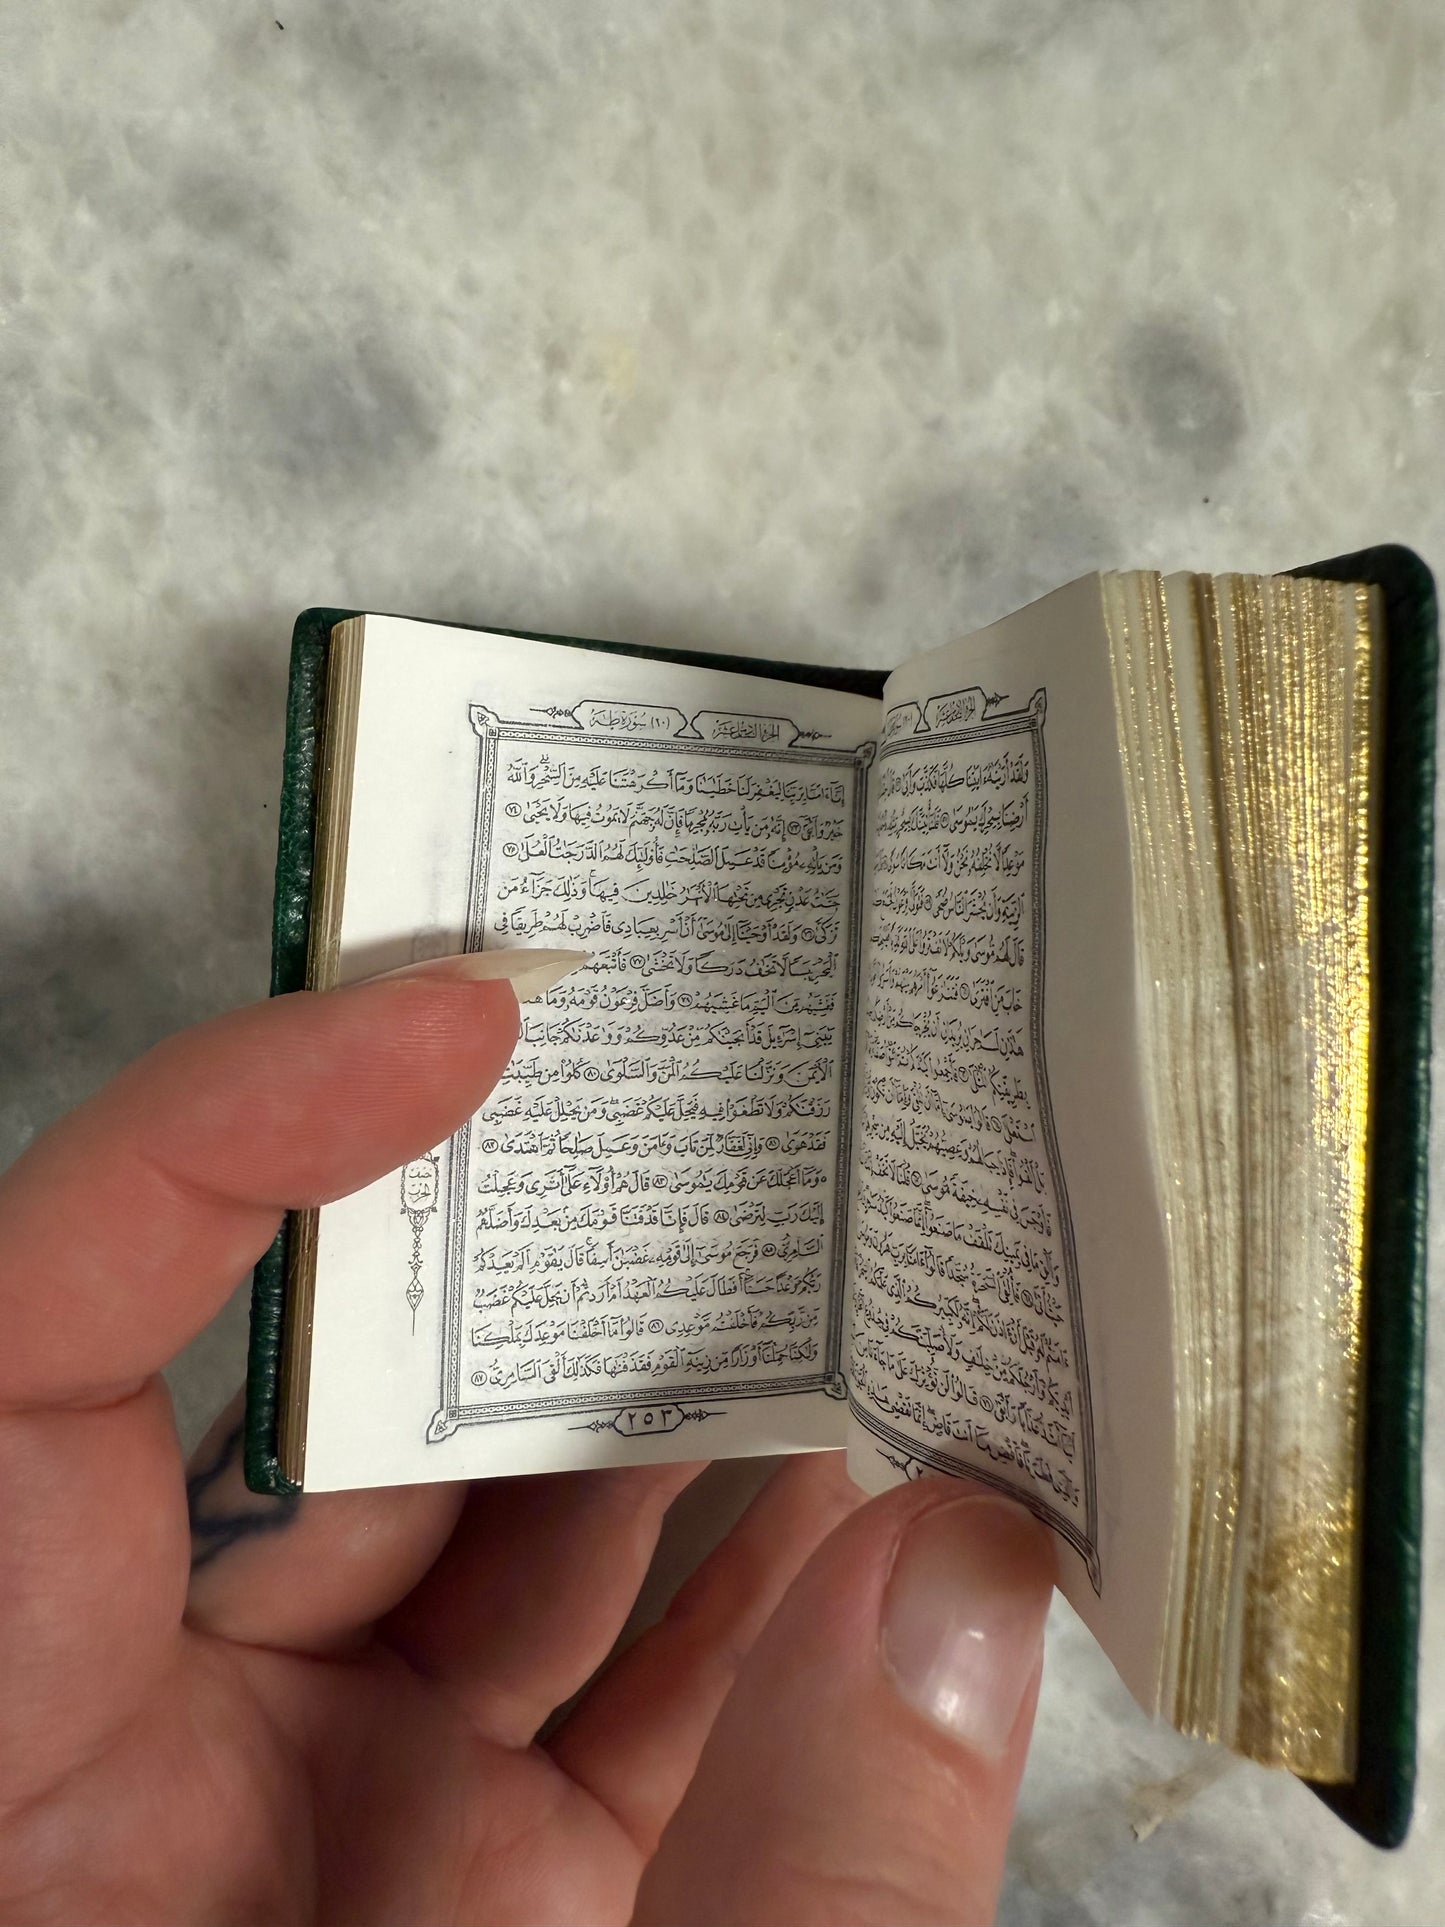 الجزء السادس عشر
وَلَقَدْ أَرَيْنَٰهُ ءَايَٰتِنَا كُلَّهَا فَكَذَّبَ وَأَبَىٰ ٥٦
أَرْضِنَا بِسِحْرِكَ يَٰمُوسَىٰ ٥٧ فَلَنَأْتِيَنَّكَ بِسِحْرٍ
مَوْعِدًا لَّا نُخْلِفُهُۥ نَحْنُ وَلَآ أَنتَ مَكَانًا
ٱلزِّينَةِ وَأَن يُحْشَرَ ٱلنَّاسُ ضُحًى ٥٩ فَتَوَلَّىٰ فِرْعَوْنُ
قَالَ لَهُم مُّوسَىٰ وَيْلَكُمْ لَا تَفْتَرُوا۟ عَلَى
خَابَ مَنِ ٱفْتَرَىٰ ٦١ فَتَنَٰزَعُوٓا۟ أَمْرَهُم بَيْنَهُمْ وَأَسَرُّوا۟
هَٰذَٰنِ لَسَٰحِرَٰنِ يُرِيدَانِ أَن يُخْرِجَاكُم مِّنْ
بِطَرِيقَتِكُمُ ٱلْمُثْلَىٰ ٦٣ فَأَجْمِعُوا۟ كَيْدَكُمْ
ٱسْتَعْلَىٰ ٦٤ قَالُوا۟ يَٰمُوسَىٰٓ إِمَّآ أَن تُلْقِىَ وَإِمَّآ أَن نَّكُونَ
بَلْ أَلْقُوا۟ فَإِذَا حِبَالُهُمْ وَعِصِيُّهُمْ يُخَيَّلُ إِلَيْهِ مِن
فَأَوْجَسَ فِى نَفْسِهِۦ خِيفَةً مُّوسَىٰ ٦٧ قُلْنَا لَا تَخَفْ
وَأَلْقِ مَا فِى يَمِينِكَ تَلْقَفْ مَا صَنَعُوٓا۟ إِنَّمَا صَنَعُوا۟ كَيْدُ
حَيْثُ أَتَىٰ ٦٩ فَأُلْقِىَ ٱلسَّحَرَةُ سُجَّدًا قَالُوٓا۟ ءَامَنَّا بِرَبِّ هَٰرُونَ
ءَامَنتُمْ لَهُۥ قَبْلَ أَنْ ءَاذَنَ لَكُمْ إِنَّهُۥ لَكَبِيرُكُمُ ٱلَّذِى عَلَّمَكُمُ
وَأَرْجُلَكُم مِّنْ خِلَٰفٍ وَلَأُصَلِّبَنَّكُمْ فِى جُذُوعِ
أَشَدُّ عَذَابًا وَأَبْقَىٰ ٧١ قَالُوا۟ لَن نُّؤْثِرَكَ عَلَىٰ مَا جَآءَنَا
فَطَرَنَا فَٱقْضِ مَآ أَنتَ قَاضٍ إِنَّمَا تَقْضِى هَٰذِهِ
الجزء السادس عشر
(٢٠) سورة طه
إِنَّآ ءَامَنَّا بِرَبِّنَا لِيَغْفِرَ لَنَا خَطَٰيَٰنَا وَمَآ أَكْرَهْتَنَا عَلَيْهِ مِنَ ٱلسِّحْرِ ۗ وَٱللَّهُ
خَيْرٌ وَأَبْقَىٰٓ ٧٣ إِنَّهُۥ مَن يَأْتِ رَبَّهُۥ مُجْرِمًا فَإِنَّ لَهُۥ جَهَنَّمَ لَا يَمُوتُ فِيهَا وَلَا يَحْيَىٰ ٧٤
وَمَن يَأْتِهِۦ مُؤْمِنًا قَدْ عَمِلَ ٱلصَّٰلِحَٰتِ فَأُو۟لَٰٓئِكَ لَهُمُ ٱلدَّرَجَٰتُ ٱلْعُلَىٰ ٧٥
جَنَّٰتُ عَدْنٍ تَجْرِى مِن تَحْتِهَا ٱلْأَنْهَٰرُ خَٰلِدِينَ فِيهَا ۚ وَذَٰلِكَ جَزَآءُ مَن
تَزَكَّىٰ ٧٦ وَلَقَدْ أَوْحَيْنَآ إِلَىٰ مُوسَىٰٓ أَنْ أَسْرِ بِعِبَادِى فَٱضْرِبْ لَهُمْ طَرِيقًا فِى
ٱلْبَحْرِ يَبَسًا لَّا تَخَٰفُ دَرَكًا وَلَا تَخْشَىٰ ٧٧ فَأَتْبَعَهُمْ
فَغَشِيَهُم مِّنَ ٱلْيَمِّ مَا غَشِيَهُمْ ٧٨ وَأَضَلَّ فِرْعَوْنُ قَوْمَهُۥ وَمَا
يَٰبَنِىٓ إِسْرَٰٓءِيلَ قَدْ أَنجَيْنَٰكُم مِّنْ عَدُوِّكُمْ وَوَٰعَدْنَٰكُمْ جَانِبَ
ٱلْأَيْمَنَ وَنَزَّلْنَا عَلَيْكُمُ ٱلْمَنَّ وَٱلسَّلْوَىٰ ٨٠ كُلُوا۟ مِن طَيِّبَٰتِ
رَزَقْنَٰكُمْ وَلَا تَطْغَوْا۟ فِيهِ فَيَحِلَّ عَلَيْكُمْ غَضَبِى ۖ وَمَن يَحْلِلْ عَلَيْهِ غَضَبِى
فَقَدْ هَوَىٰ ٨١ وَإِنِّى لَغَفَّارٌ لِّمَن تَابَ وَءَامَنَ وَعَمِلَ صَٰلِحًا ثُمَّ ٱهْتَدَىٰ ٨٢
۞ وَمَآ أَعْجَلَكَ عَن قَوْمِكَ يَٰمُوسَىٰ ٨٣ قَالَ هُمْ أُو۟لَآءِ عَلَىٰٓ أَثَرِى وَعَجِلْتُ
إِلَيْكَ رَبِّ لِتَرْضَىٰ ٨٤ قَالَ فَإِنَّا قَدْ فَتَنَّا قَوْمَكَ مِنۢ بَعْدِكَ وَأَضَلَّهُمُ
ٱلسَّامِرِىُّ ٨٥ فَرَجَعَ مُوسَىٰٓ إِلَىٰ قَوْمِهِۦ غَضْبَٰنَ أَسِفًا ۚ قَالَ يَٰقَوْمِ أَلَمْ يَعِدْكُمْ
رَبُّكُمْ وَعْدًا حَسَنًا ۚ أَفَطَالَ عَلَيْكُمُ ٱلْعَهْدُ أَمْ أَرَدتُّمْ أَن يَحِلَّ عَلَيْكُمْ غَضَبٌ
مِّن رَّبِّكُمْ فَأَخْلَفْتُم مَّوْعِدِى ٨٦ قَالُوا۟ مَآ أَخْلَفْنَا مَوْعِدَكَ بِمَلْكِنَا
وَلَٰكِنَّا حُمِّلْنَآ أَوْزَارًا مِّن زِينَةِ ٱلْقَوْمِ فَقَذَفْنَٰهَا فَكَذَٰلِكَ أَلْقَى ٱلسَّامِرِىُّ ٨٧
نصف
الحزب
٢٥٣